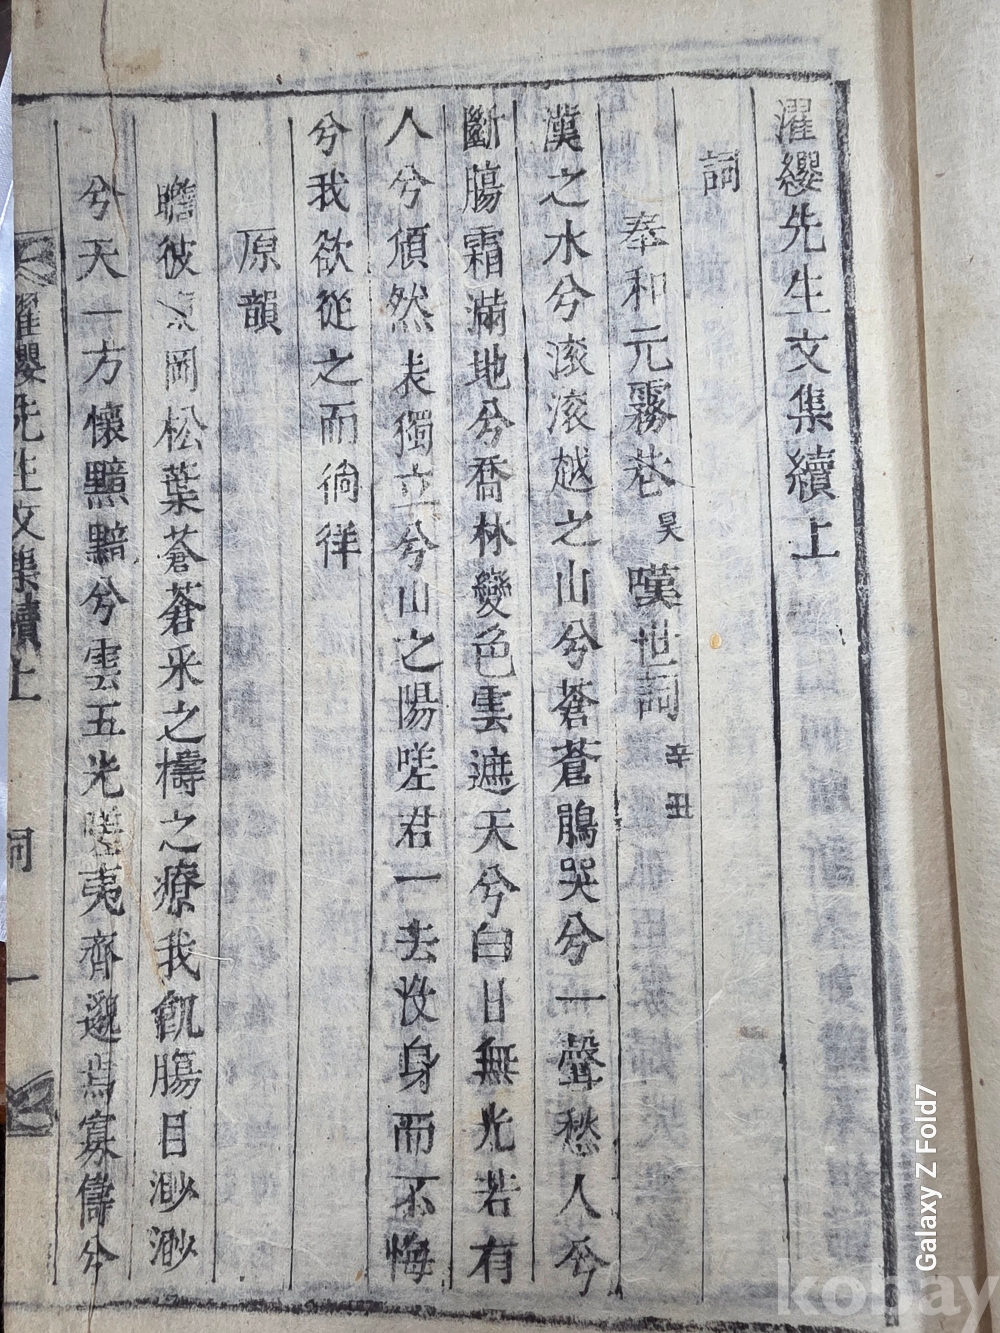 濯纓先生文集續上
詞
奉和元霧巷昊嘆世詞辛丑
漢之水兮滚滚越之山兮蒼蒼鵑哭兮一聲愁人兮
斷膓霜滿地兮喬林變色雲遮天兮白日無光若有
人兮頎然表獨立兮山之陽嗟君一去沒身而不悔
兮我欲從之而徜徉
原韻
瞻彼 岡松葉蒼蒼釆之擣之療我飢膓目渺渺
兮天一方懷黯黯兮雲五光嗟夷齊邈焉寡儔兮
濯纓先生文集續上 詞 一
Galaxy Z Fold7
kobay